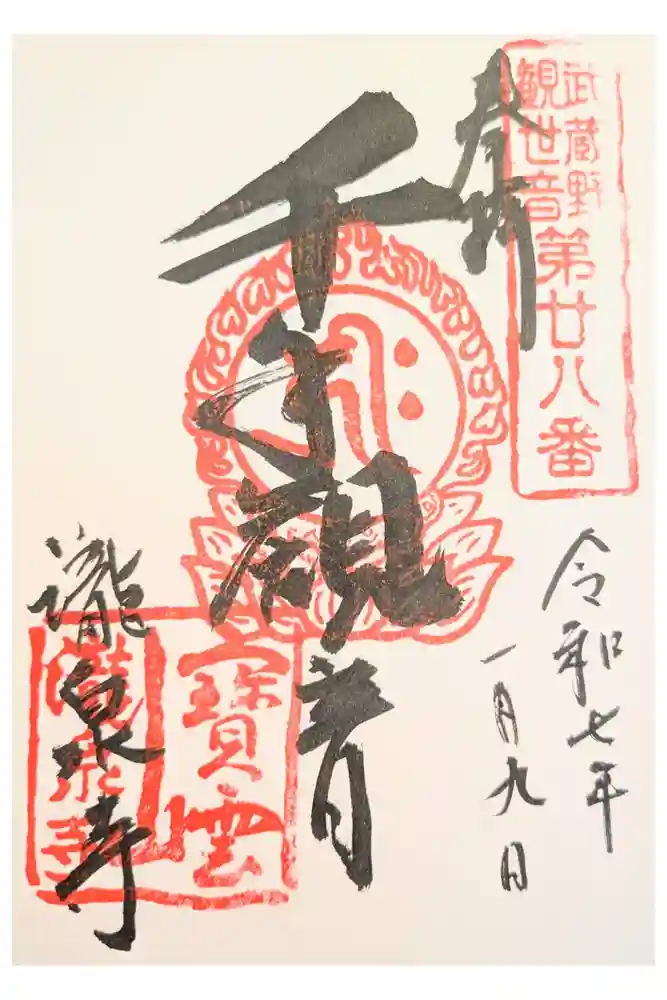 奉拝
武蔵野
観世音第廿八番
千手観音
令和七年
一月九日
瀧泉寺
寶雲
瀧泉寺